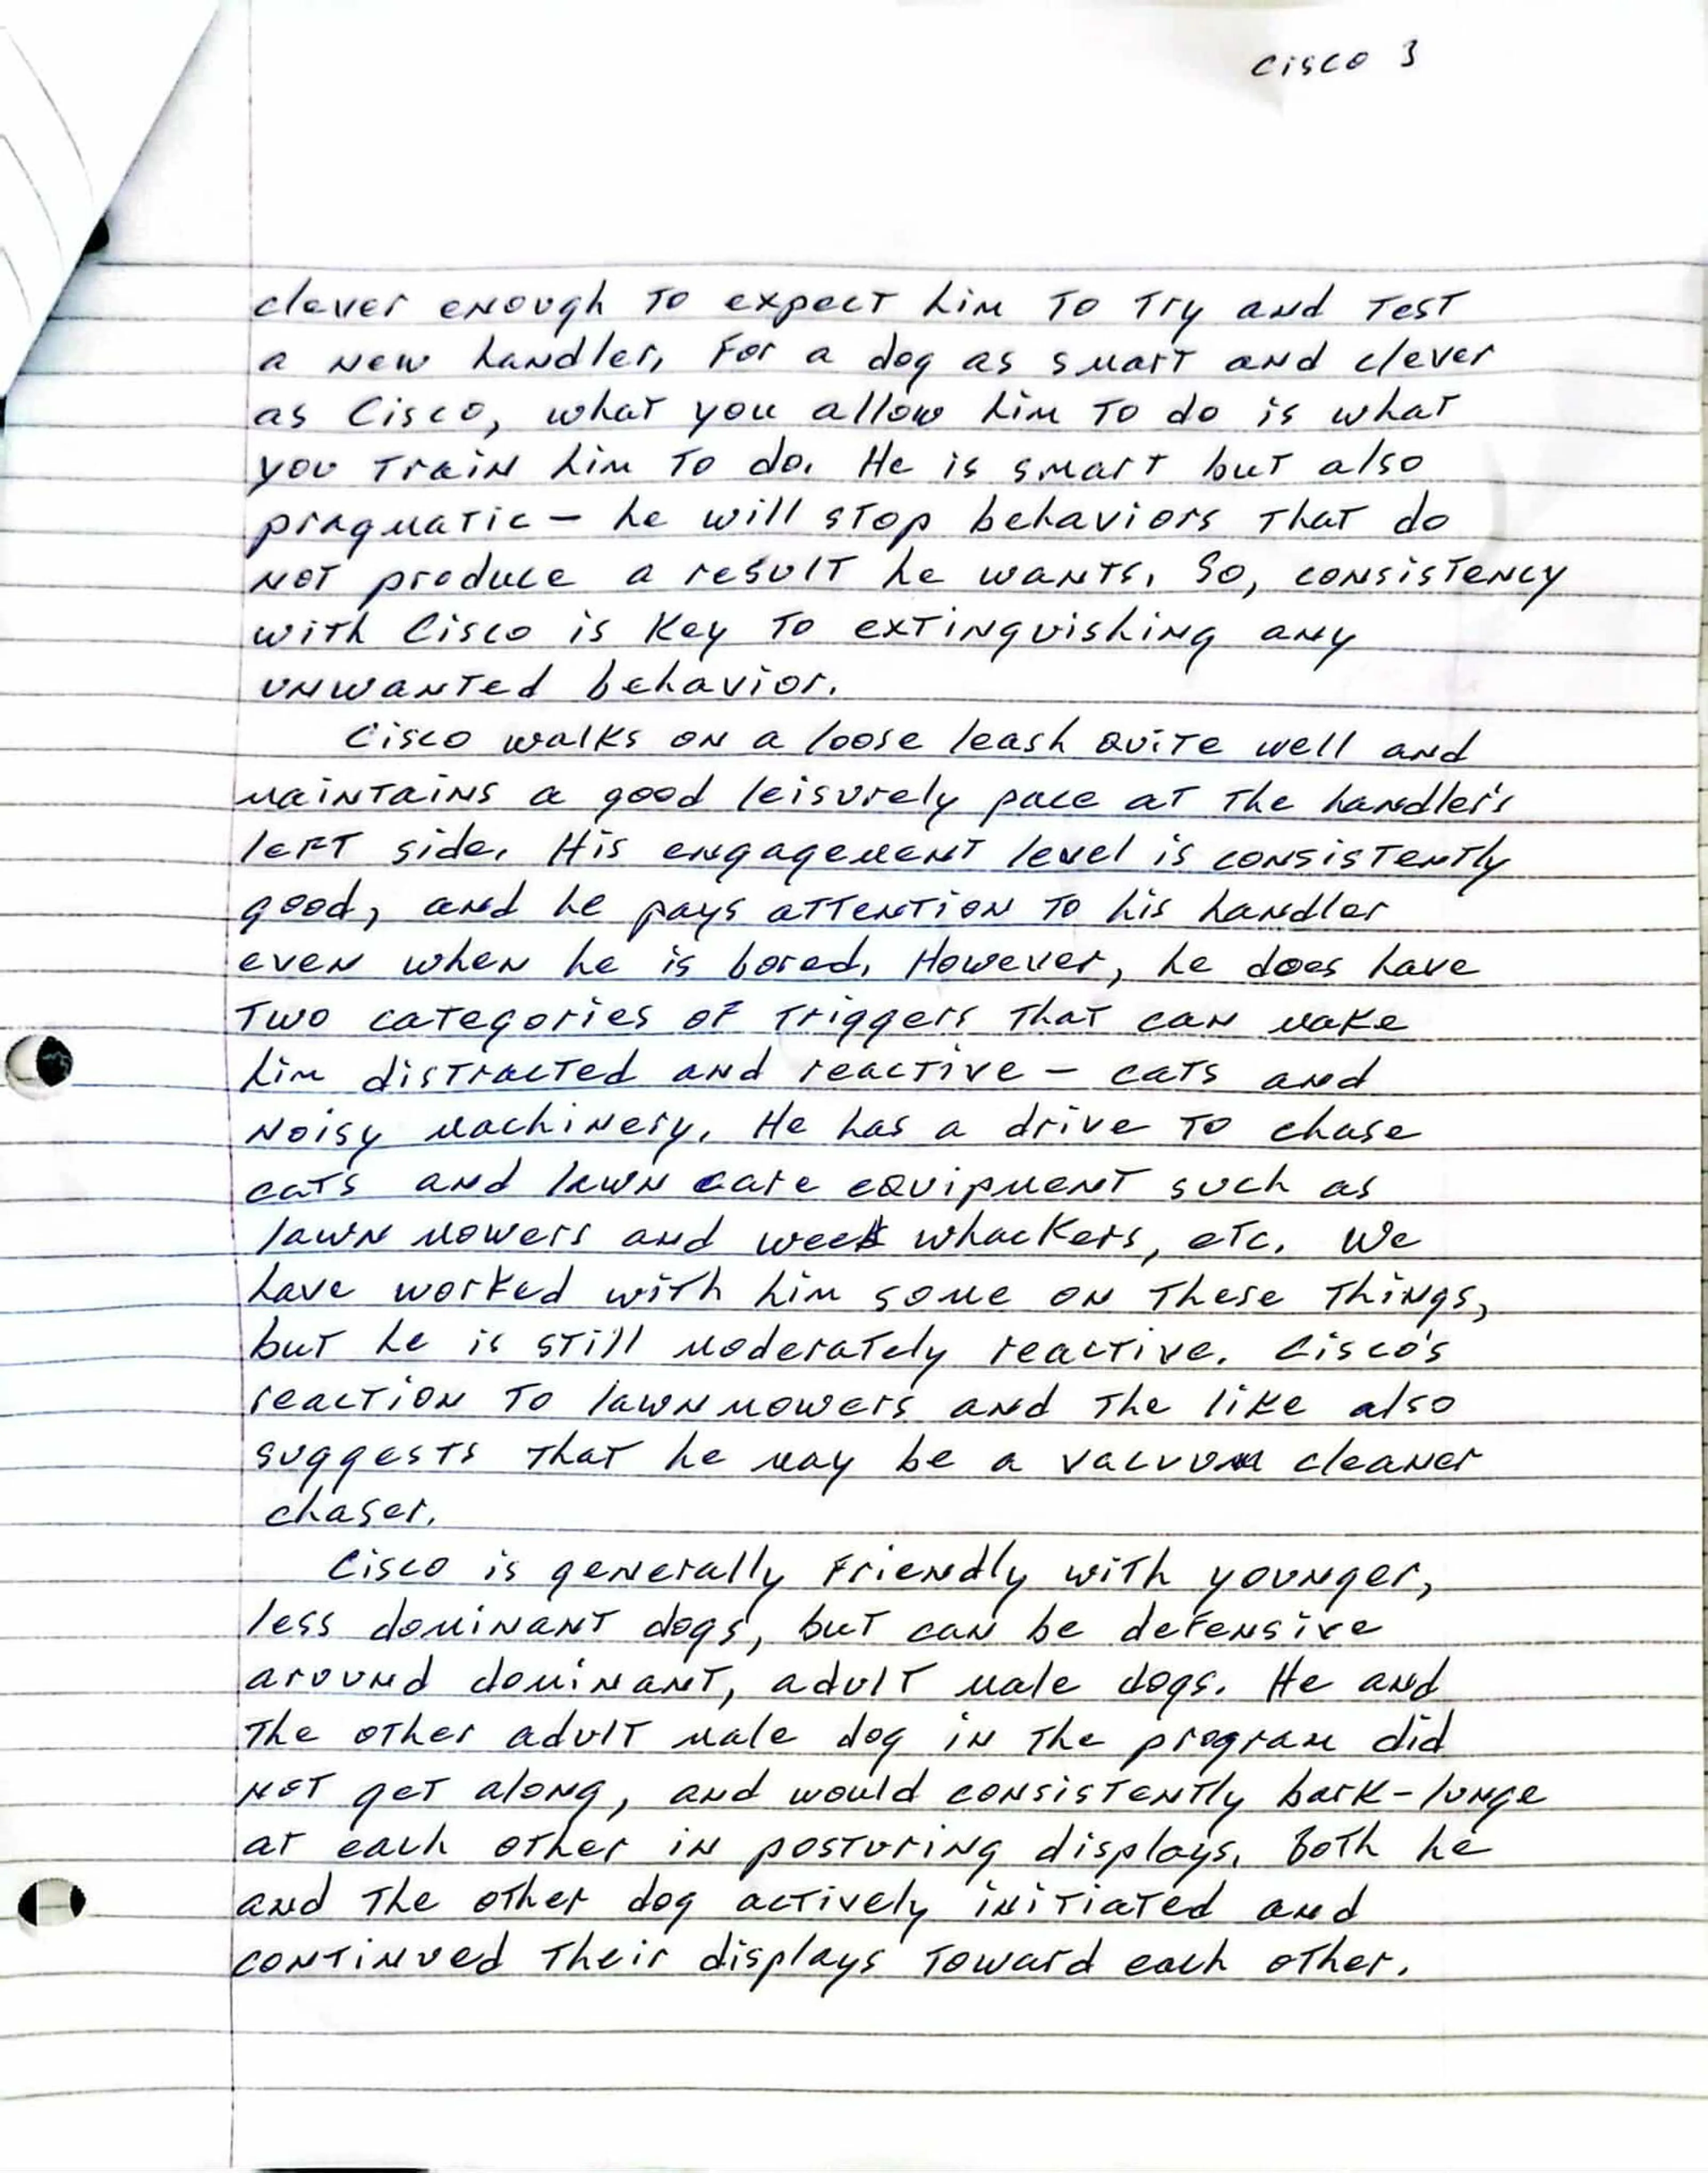 Cisco 3
clever enough to expect him to try and test
a new handler. For a dog as smart and clever
as Cisco, what you allow him to do is what
you train him to do. He is smart but also
pragmatic – he will stop behaviors that do
not produce a result he wants. So, consistency
with Cisco is key to extinguishing any
unwanted behavior.
Cisco walks on a loose leash quite well and
maintains a good leisurely pace at the handler's
left side. His engagement level is consistently
good, and he pays attention to his handler
even when he is bored. However, he does have
two categories of triggers that can make
him distracted and reactive – cats and
noisy machinery. He has a drive to chase
cats and lawn care equipment such as
lawn mowers and weed whackers, etc. We
have worked with him some on these things,
but he is still moderately reactive. Cisco's
reaction to lawnmowers and the like also
suggests that he may be a vacuum cleaner
chaser.
Cisco is generally friendly with younger,
less dominant dogs, but can be defensive
around dominant, adult male dogs. He and
the other adult male dog in the program did
not get along, and would consistently bark-lunge
at each other in posturing displays. Both he
and the other dog actively initiated and
continued their displays toward each other.